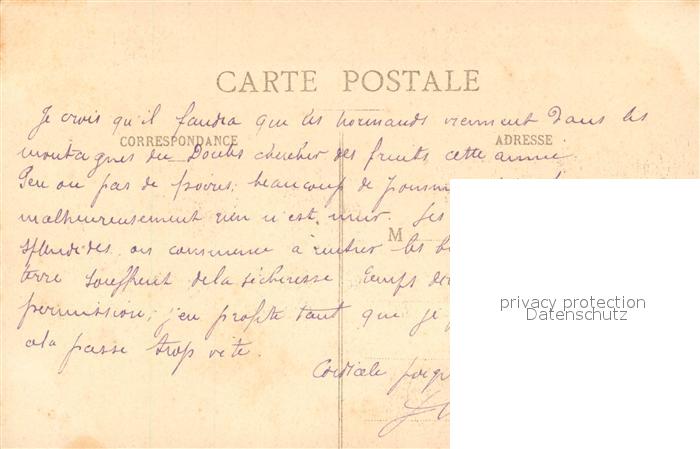 CARTE POSTALE
Je crois qu'il faudra que les normands viennent dans les
CORRESPONDANCE ADRESSE
montagnes du Doubs chercher des fruits cette année.
Peu ou pas de poires, beaucoup de
malheureusement rien n'est mur. Les
M
splendides, on commence à rentrer les
terre souffrent de la sécheresse Temps
permission, j'en profite tant que je
cela passe trop vite.
Cordiale
privacy protection
Datenschutz